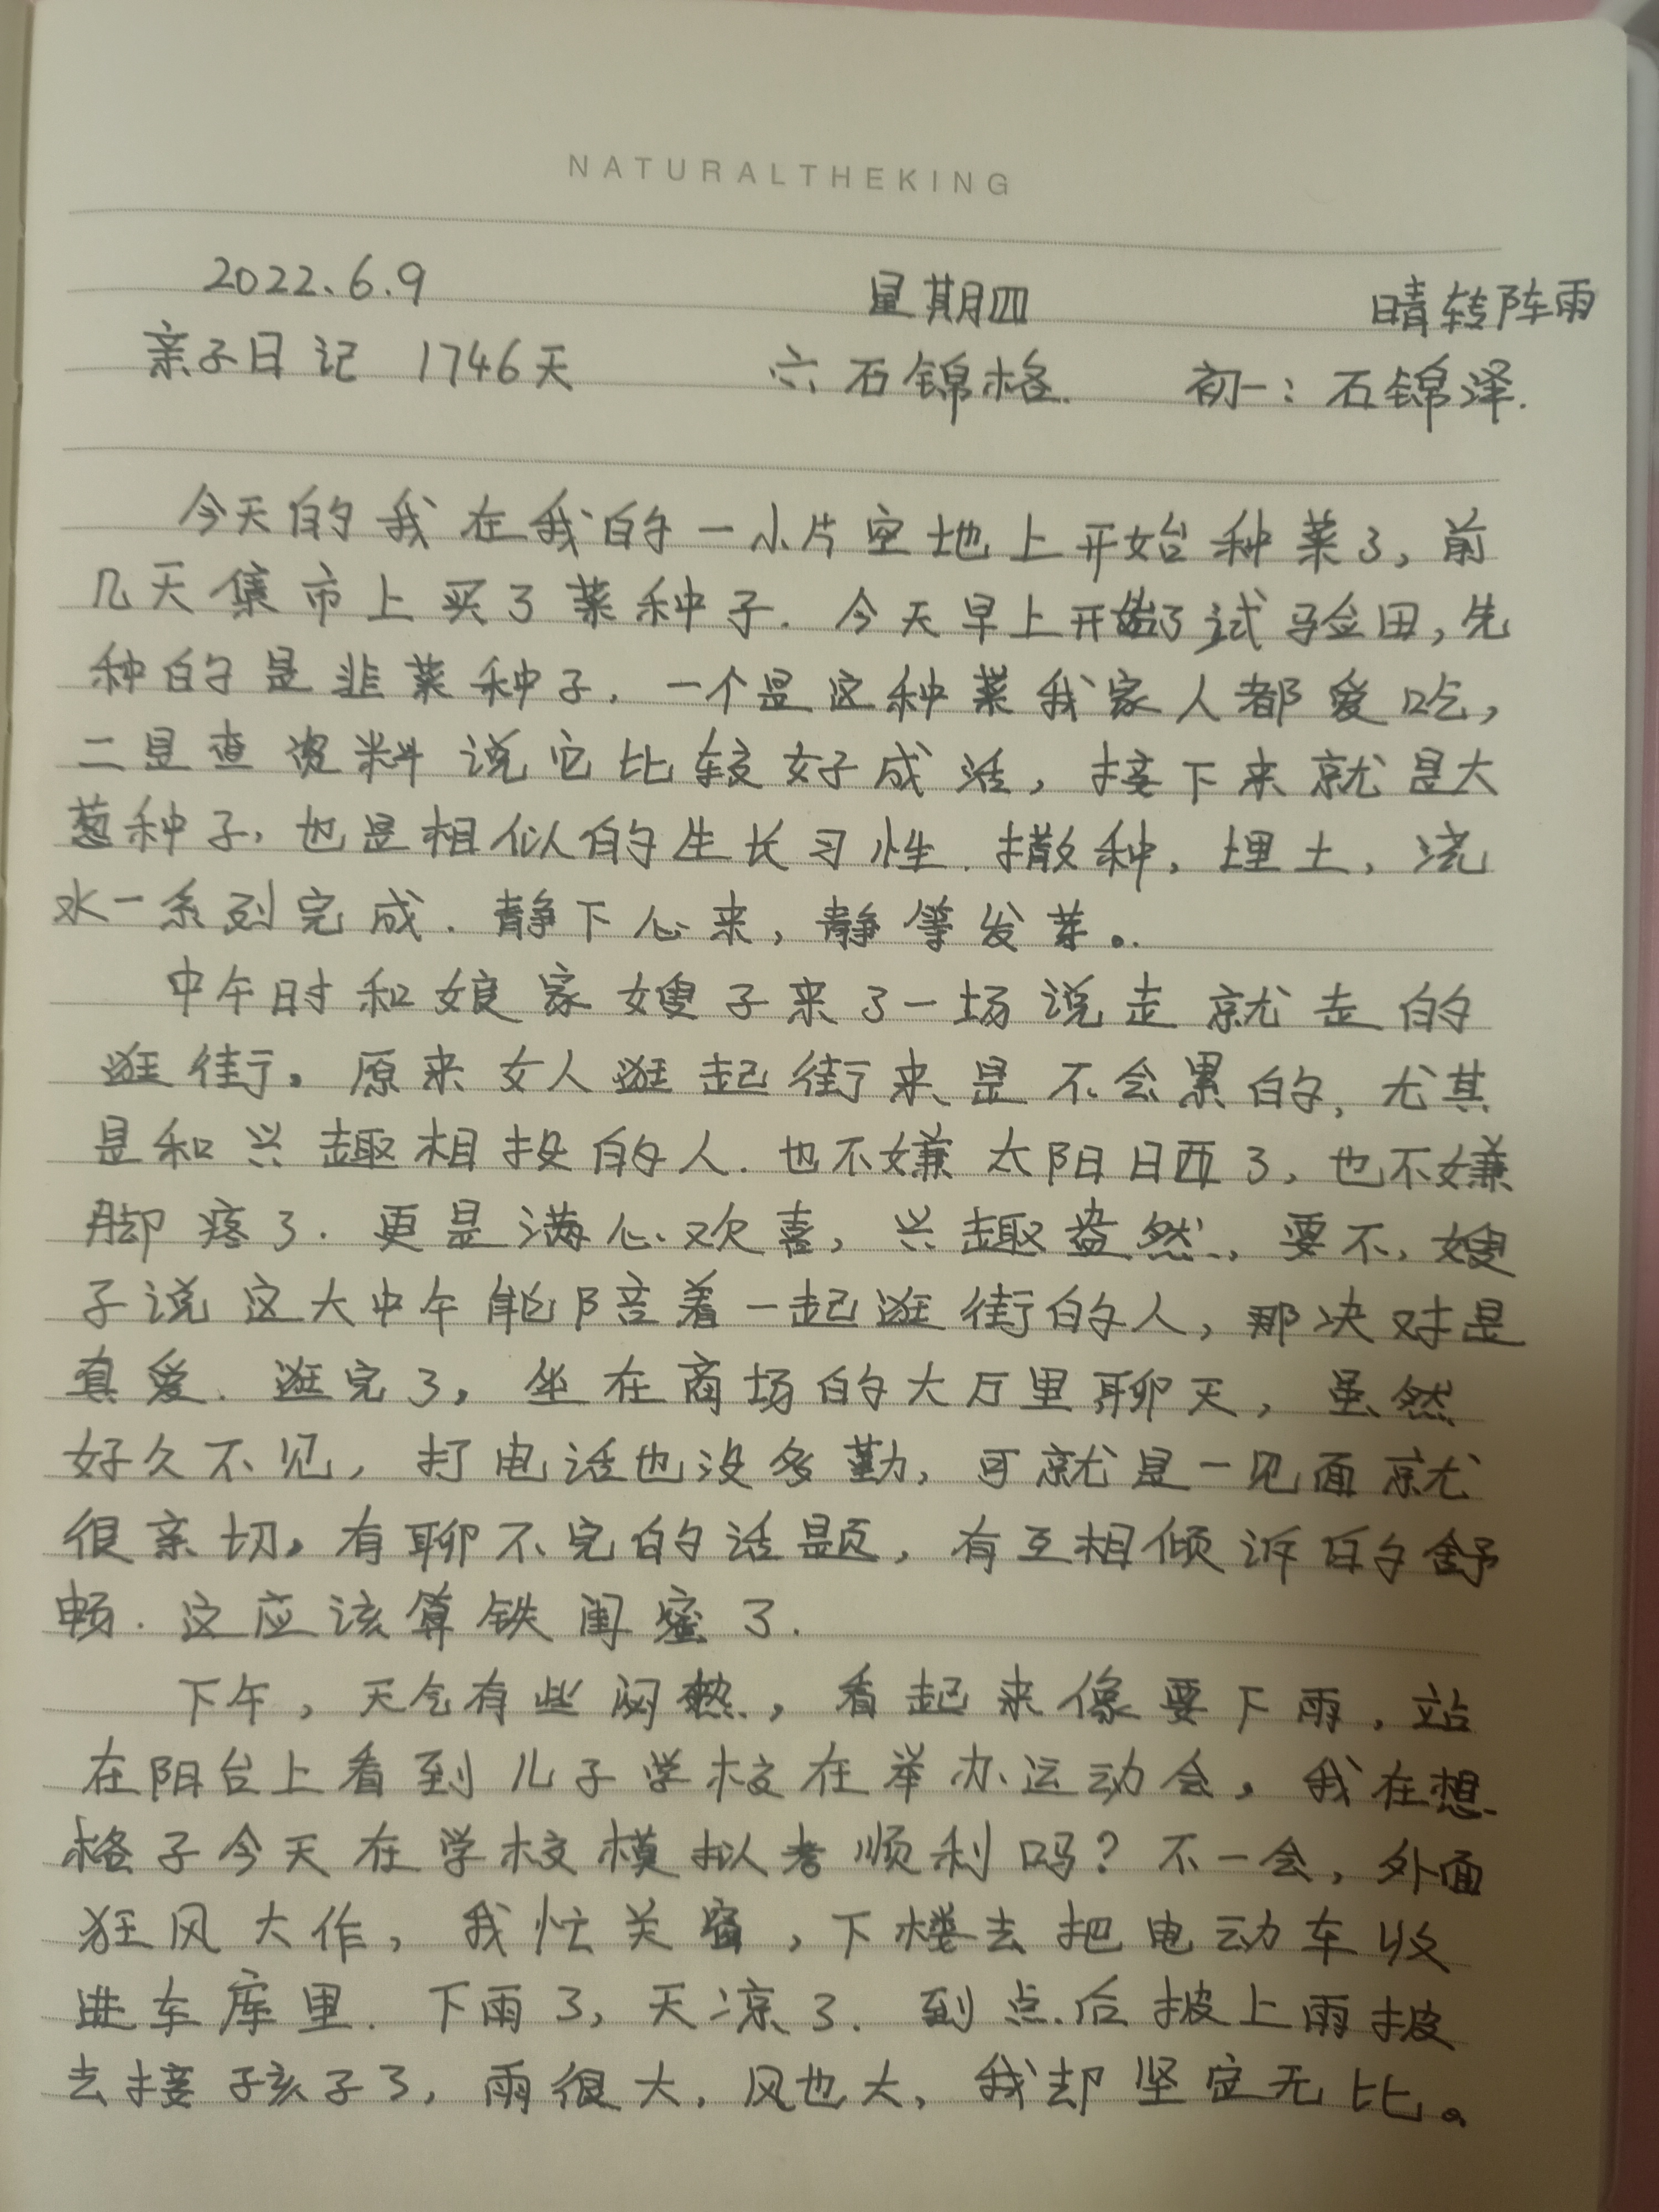 NATURALTHEKING
2022.6.9 星期四 晴转阵雨
亲子日记 1746天 六 石锦格. 初一:石锦泽.
今天的我在我的一小片空地上开始种菜了,前
几天集市上买了菜种子.今天早上开始了试验田,先
种的是韭菜种子.一个是这种菜我家人都爱吃,
二是查资料说它比较好成活,接下来就是大
葱种子,也是相似的生长习性.撒种,埋土,浇
水一系列完成.静下心来,静等发芽。
中午时和娘家嫂子来了一场说走就走的
逛街。原来女人逛起街来是不会累的,尤其
是和兴趣相投的人.也不嫌太阳日西了,也不嫌
脚疼了.更是满心欢喜,兴趣盎然,要不,嫂
子说这大中午能陪着一起逛街的人,那决对是
真爱.逛完了,坐在商场的大厅里聊天,虽然
好久不见,打电话也没多勤,可就是一见面就
很亲切,有聊不完的话题,有互相倾诉的舒
畅.这应该算铁闺蜜了.
下午,天气有些闷热,看起来像要下雨,站
在阳台上看到儿子学校在举办运动会,我在想
格子今天在学校模拟考顺利吗?不一会,外面
狂风大作,我忙关窗,下楼去把电动车收
进车库里.下雨了,天凉了.到点后披上雨披
去接孩子了,雨很大,风也大,我却坚定无比。